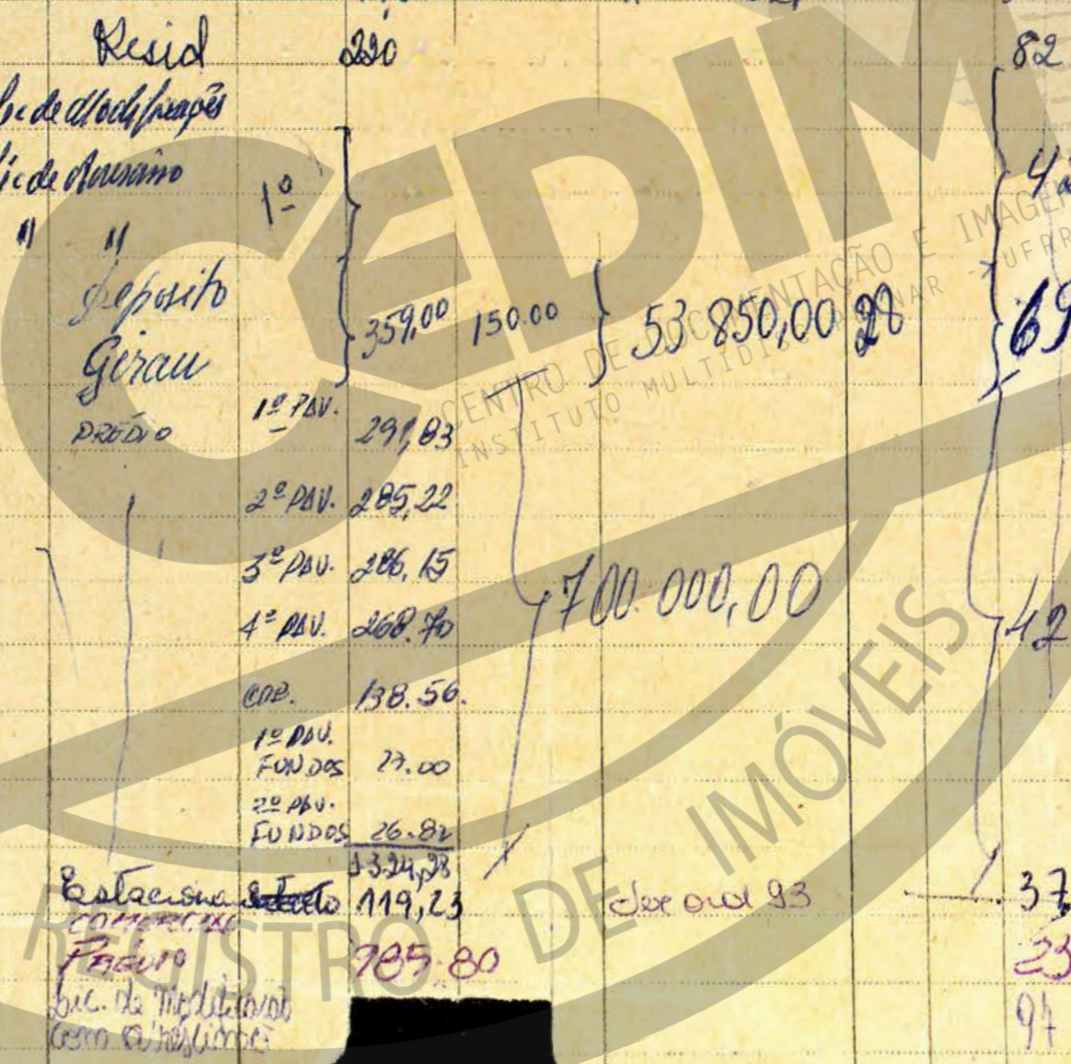 Resid 220 82
Lic de Modificações
Lic de Acréscimo 1º
" "
Deposito
Girau 359,00 150.00 53 850,00 28 69
PRÉDIO 1º PAV. 291,83
2º PAV. 285,22
3º PAV. 286,15
4º PAV. 268.70 700.000,00 42
COB. 138.56.
1º PAV.
FUNDOS 27.00
2º PAV.
FUNDOS 26.82
1324,28
Estaciona 119,23 37
COMERCIAL
PREDIO 985.80 23
Lic. de Modificação 97
com
CEDIM
CENTRO DE DOCUMENTAÇÃO E IMAGEM
INSTITUTO MULTIDISCIPLINAR - UFRR
REGISTRO DE IMÓVEIS